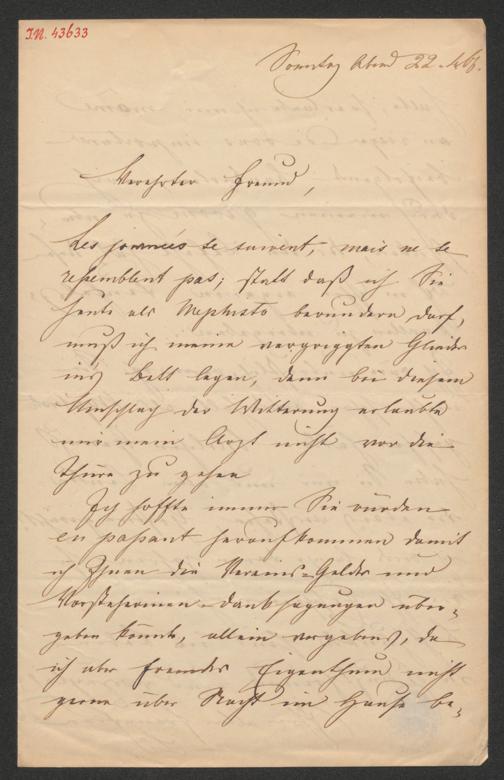 I.N. 43633
Sonntag Abend 22
Verehrter Freund,
Les journées se suivent, mais ne se
ressemblent pas; statt daß ich Sie
heute als Mephisto bewundern darf,
muß ich meine vergrippten Glieder
ins Bett legen, denn bei diesem
Umschlag der Witterung erlaubte
mir mein Arzt nicht vor die
Thüre zu gehen
Ich hoffte immer Sie würden
en passant heraufkommen damit
ich Ihnen die Vereins-Gelder und
Vorsteherinen-danksagungen über-
geben könnte, allein vergebens, da
ich aber fremdes Eigenthum nicht
gerne über Nacht im Hause be-